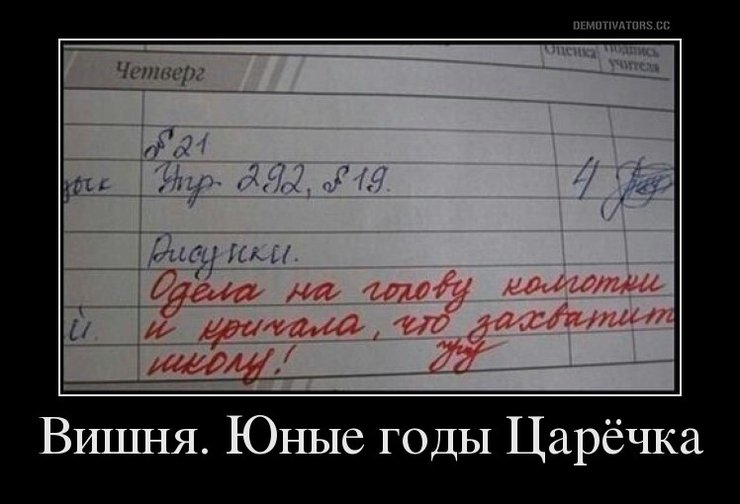 DEMOTIVATORS.CC
Четверг
Оценка Подпись учителя
§ 21
зык Упр. 292, § 19. 4
Рисунки.
Одела на голову колготки
й. и кричала, что захватит
школу!
Вишня. Юные годы Царёчка